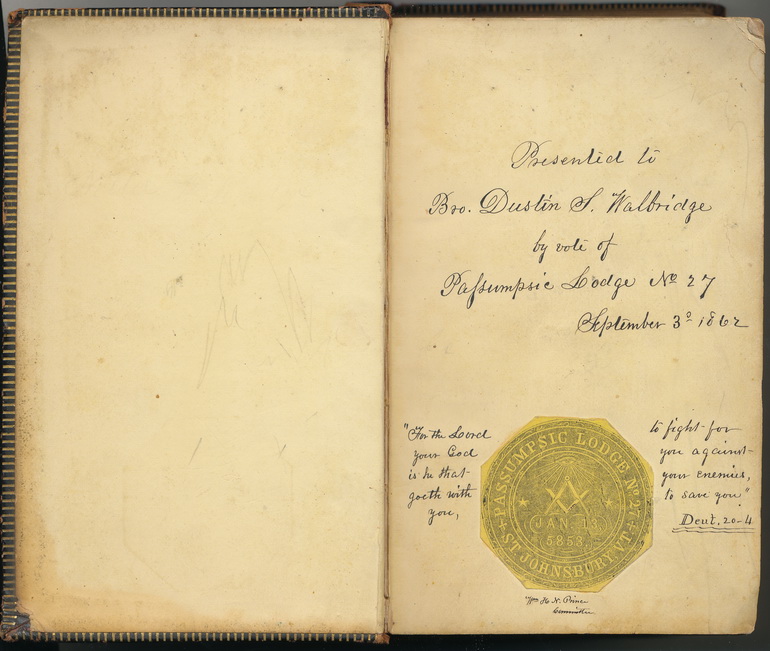 Presented to
Bro. Dustin S. Walbridge
by vote of
Passumpsic Lodge No 27
September 3d 1862
"For the Lord
your God
is he that
goeth with
you,
PASSUMPSIC LODGE, No 27,
JAN. 13,
5853.
ST JOHNSBURY VT.
to fight for
you against
your enemies,
to save you"
Deut. 20-4
Wm H. N. Prince
Committee